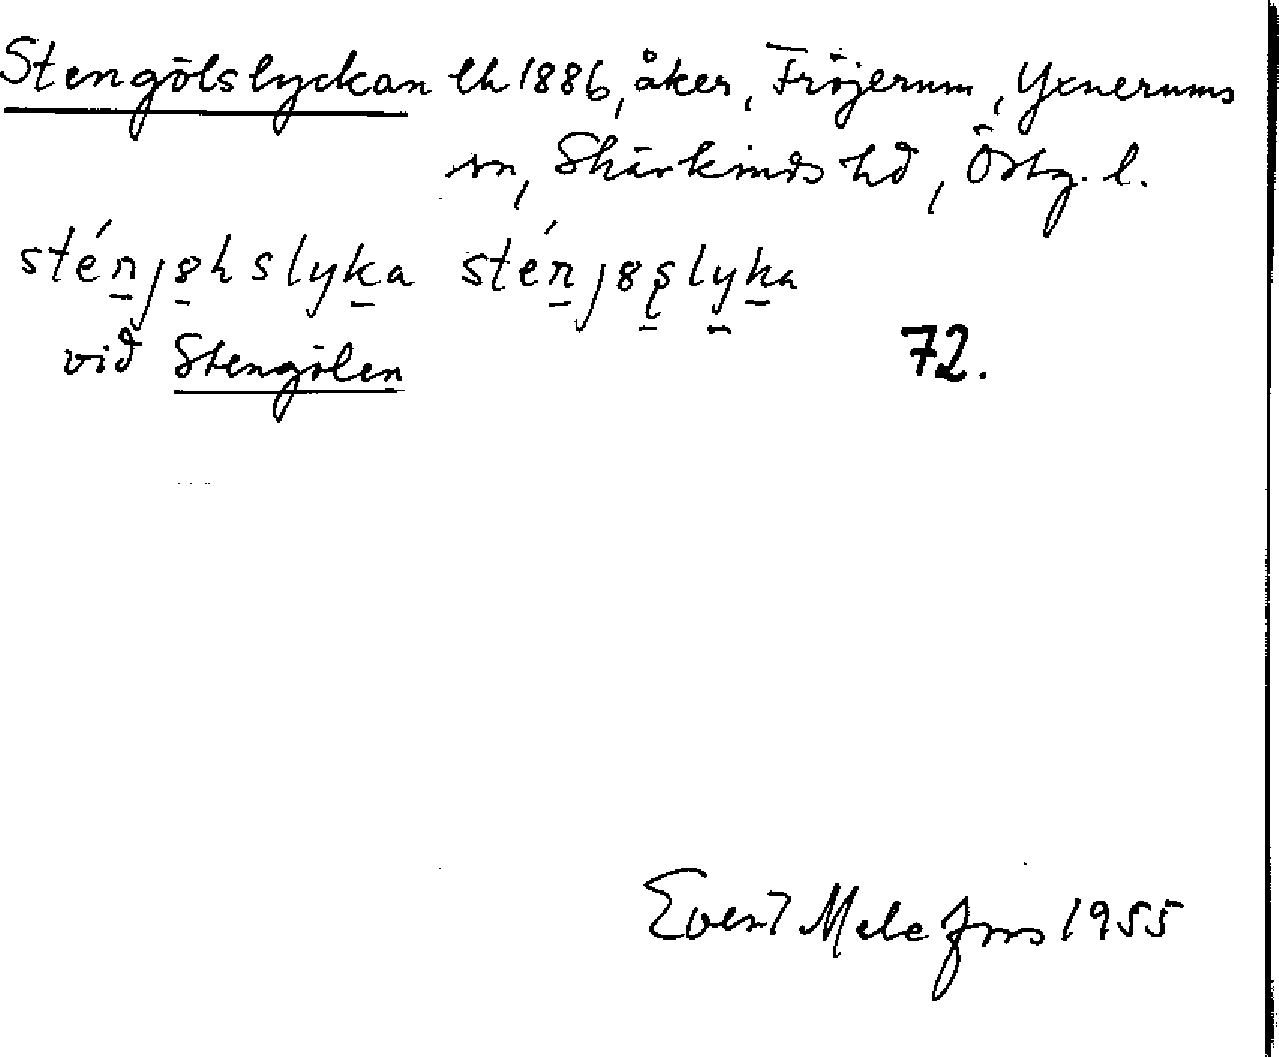 Stengölslyckan lh 1886, åker, Fröjerum, Yxnerums
sn, Skärkinds hd, Östg. l.
sténjɵhslyka sténjɵslyka
vid Stengölen
72.
Evert Melefors 1955